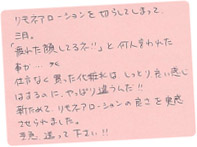 リモネアローションを切らしてしまって、
三日。
「疲れた顔してるネ!!」と何人言われた
事か…
仕方なく買った化粧水は しっとり良い感じ
はするのに、やっぱり違うんだ!!
新ためて、リモネアローションの良さを実感
させられました。
至急 送って下さい!!